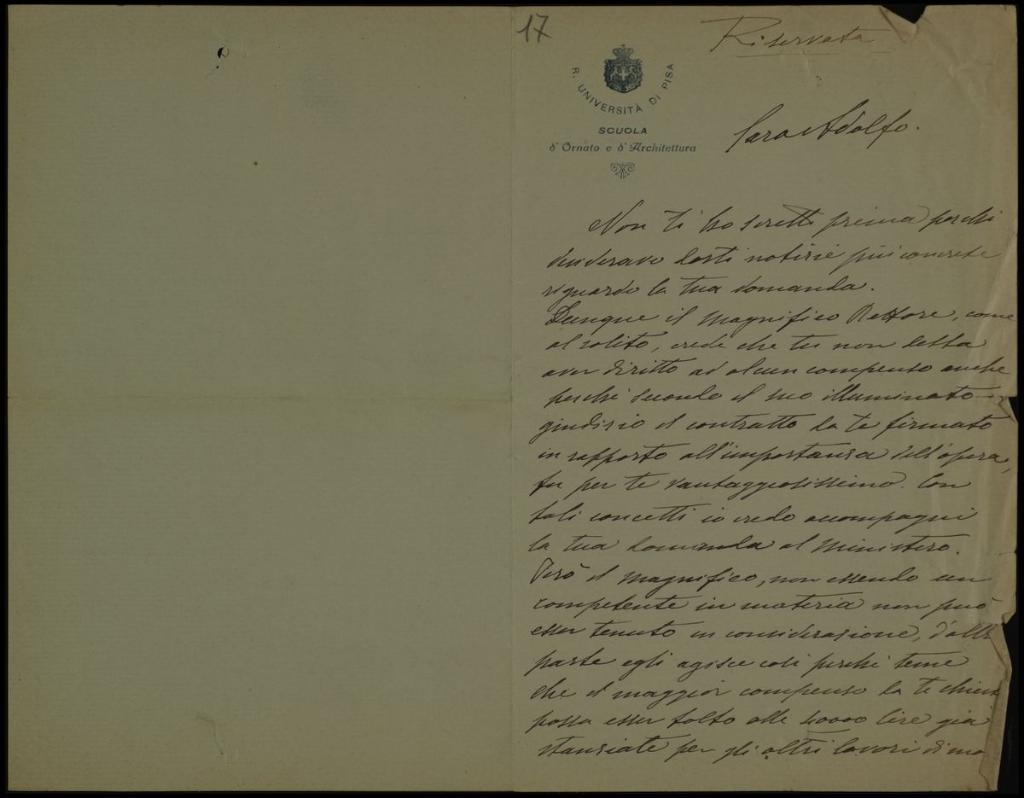 17
Riservata
R. UNIVERSITÀ DI PISA
SCUOLA
d'Ornato e d'Architettura
Caro Adolfo.
Non ti ho scritto prima perchè
desideravo darti notizie più concrete
riguardo la tua domanda.
Dunque il Magnifico Rettore, come
al solito, crede che tu non debba
aver diritto ad alcun compenso anche
perchè secondo il suo illuminato
giudizio il contratto da te firmato
in rapporto all'importanza dell'opera,
fu per te vantaggiosissimo. Con
tali concetti io credo accompagni
la tua domanda al Ministero.
Però il magnifico, non essendo un
competente in materia non può
esser tenuto in considerazione, d'altr
parte egli agisce così perchè teme
che il maggior compenso da te chiesto
possa esser tolto alle lire già
stanziate per gli altri lavori di